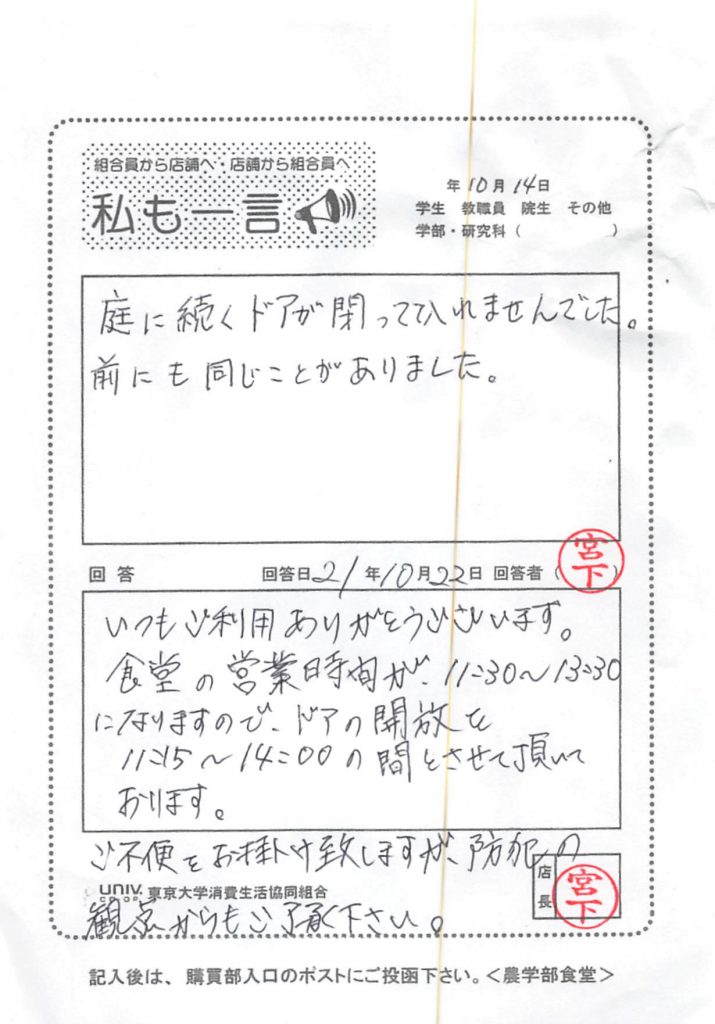 組合員から店舗へ・店舗から組合員へ
私も一言
年10月14日
学生 教職員 院生 その他
学部・研究科( )
庭に続くドアが閉って入れませんでした。
前にも同じことがありました。
回答 回答日21年10月22日 回答者(宮下)
いつもご利用ありがとうございます。
食堂の営業時間が、11:30~13:30
になりますので、ドアの開放を
11:15~14:00の間とさせて頂いて
おります。
ご不便をお掛け致しますが、防犯の
観点からもご了承下さい。
UNIV. CO-OP 東京大学消費生活協同組合
店長 宮下
記入後は、購買部入口のポストにご投函下さい。<農学部食堂>